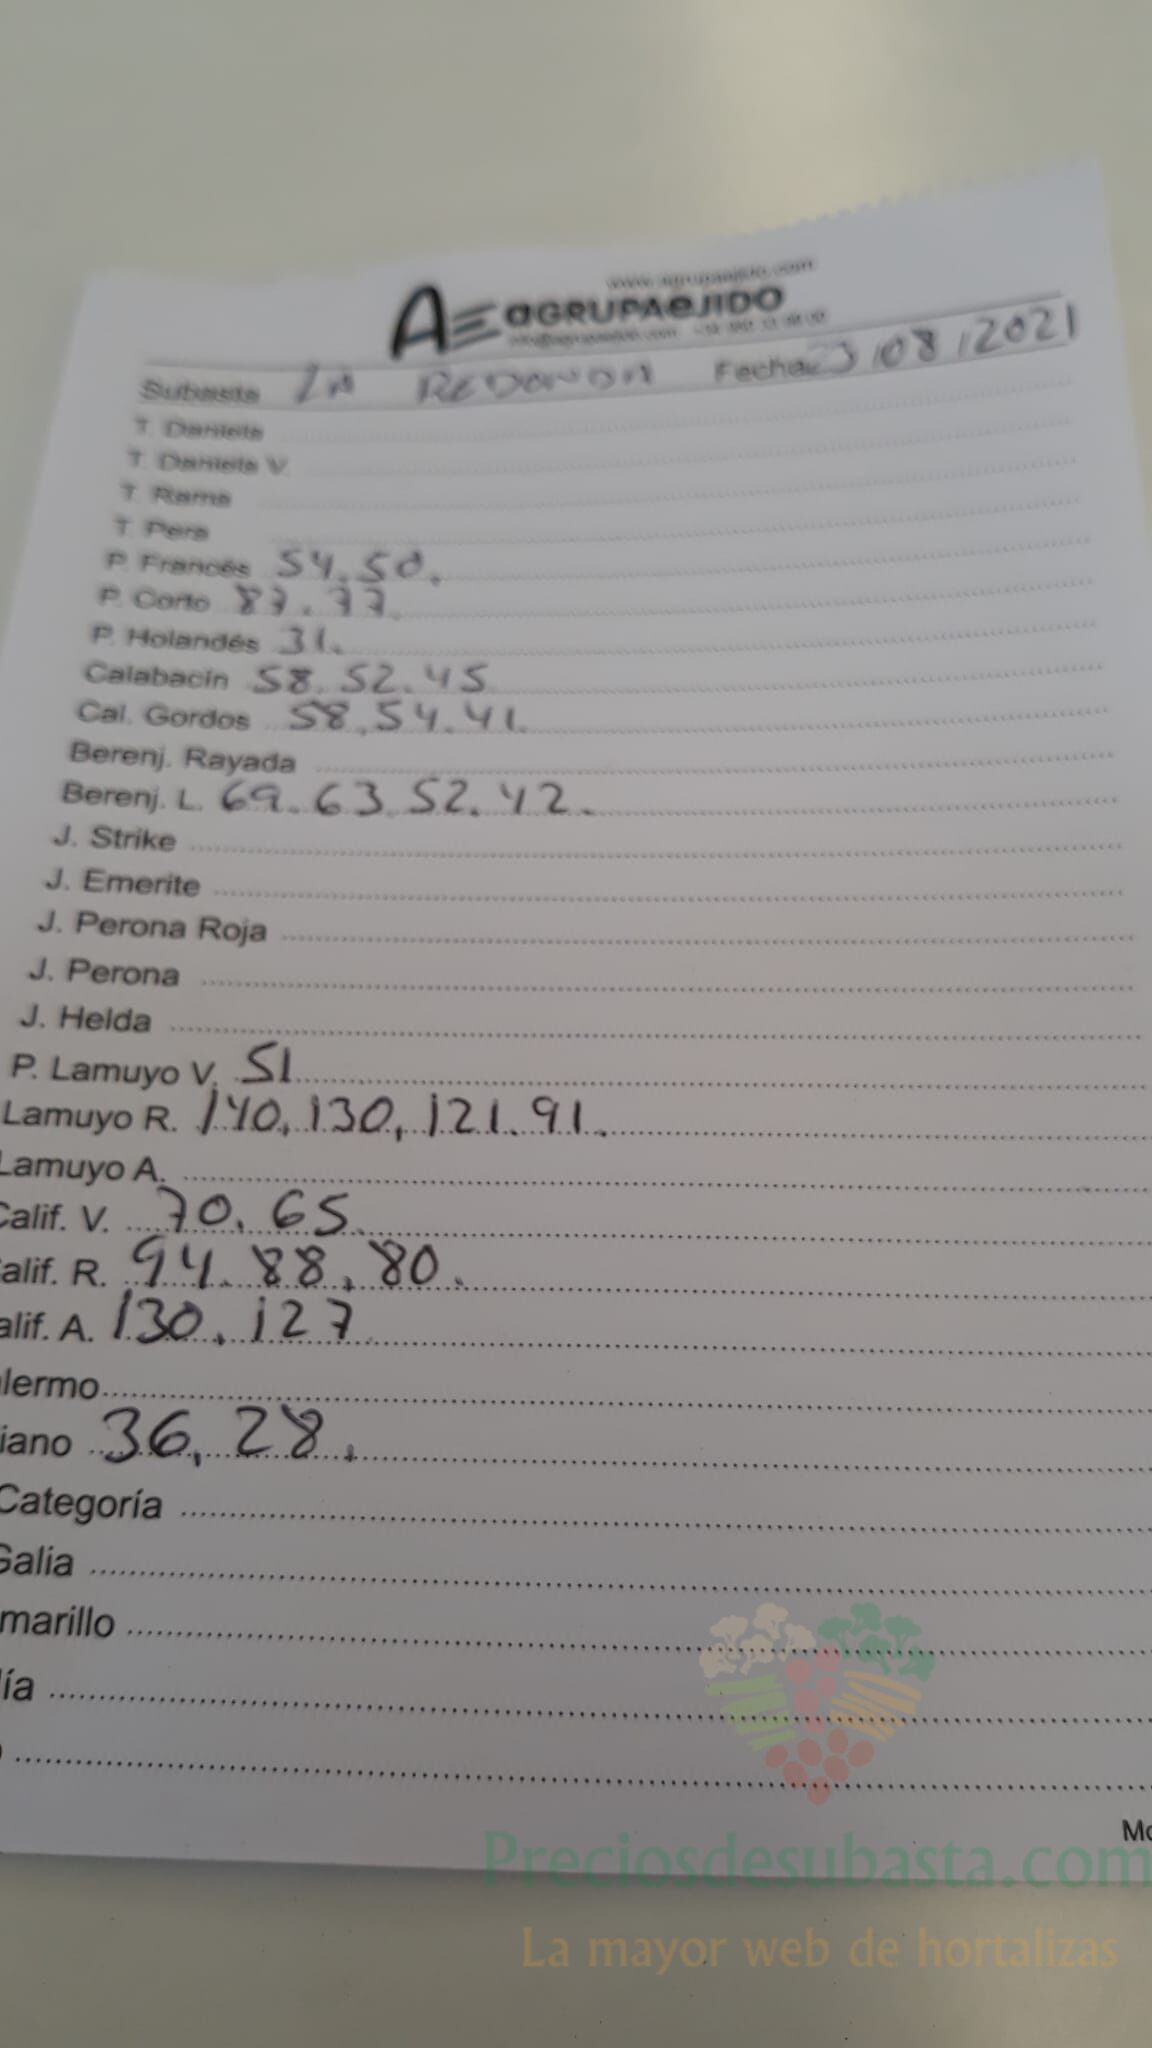 www.agrupaejido.com
AE aGRUPAeJIDO
Subasta LA REDONDA Fecha 23/08/2021
T. Daniela
T. Daniela V.
T. Rama
T. Pera
P. Francés 54.50.
P. Corto 87.77.
P. Holandés 31.
Calabacín 58.52.45
Cal. Gordos 58.54.41.
Berenj. Rayada
Berenj. L. 69.63.52.42.
J. Strike
J. Emerite
J. Perona Roja
J. Perona
J. Helda
P. Lamuyo V. 51
Lamuyo R. 140.130.121.91.
Lamuyo A.
Calif. V. 70.65.
alif. R. 94.88.80.
alif. A. 130.127
lermo
iano 36.28.
Categoría
Galia
marillo
ía
Mo
Preciosdesubasta.com
La mayor web de hortalizas